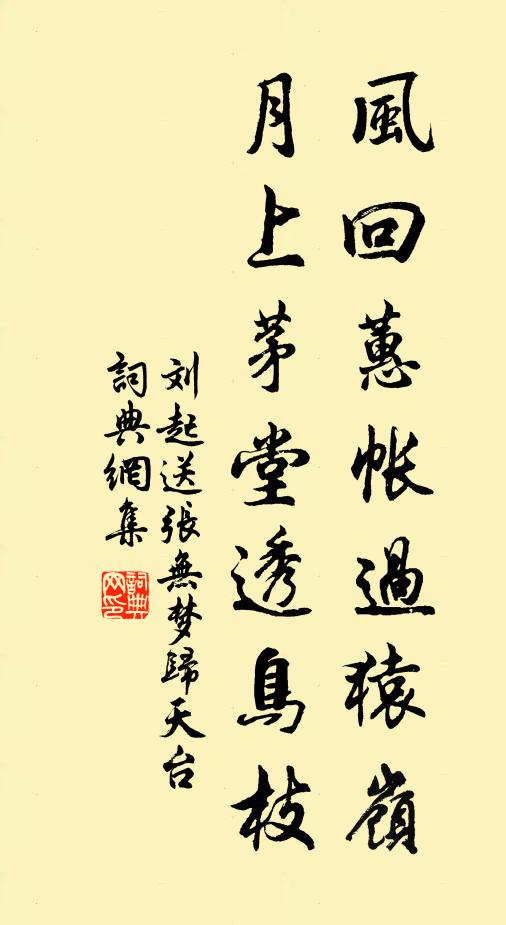 風回蕙帳過猿嶺
月上茅堂透鳥枝
刘起送張無梦歸天台
詞典網集
詞典网印